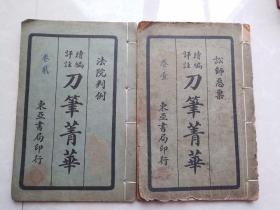 法院判例
續編
評註
刀筆菁華
卷貳
東亞書局印行
訟師惡稟
續編
評註
刀筆菁華
卷壹
東亞書局印行